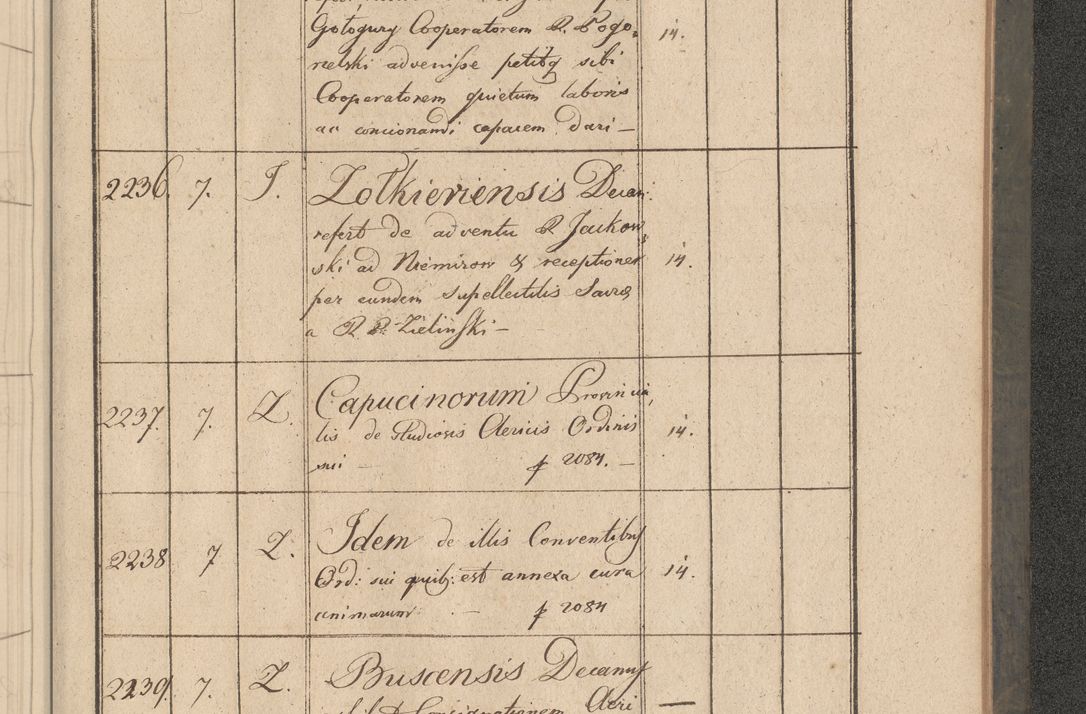 Gołogury Cooperatorem R. Pogo, 14.
relski advenisse petitq sibi
Cooperatorem quietum laboris
ac concionandi capacem dari —
2236. 7. J. Zołkieviensis Decan:
refert de adventu R. Jackow,
ski ad Niemirow & receptionem 14.
per eundem supellectilis Sacræ
a R. P. Zieliński —
2237. 7. Z. Capucinorum Provincia,
lis de studiosis Clericis Ordinis 14.
sui — p 2084. —
2238 7 Z. Idem de illis Conventibus
Ord: sui quib: est annexa cura 14.
animarum — p 2084
2239. 7. Z. Buscensis Decanus
Consignationem Cleri —